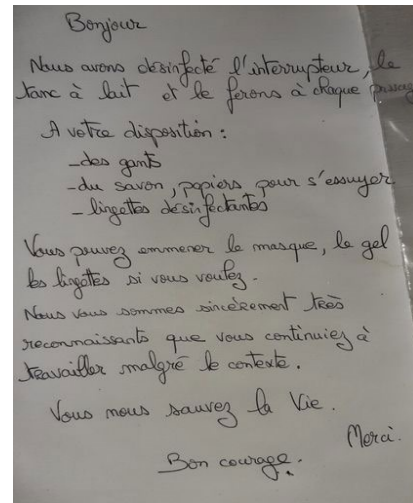 Bonjour
Nous avons désinfecté l'interrupteur, le
tanc à lait et le ferons à chaque passag
A votre disposition :
- des gants
- du savon, papiers pour s'essuyer
- lingettes désinfectantes
Vous pouvez emmener le masque, le gel
les lingettes si vous voulez.
Nous vous sommes sincèrement très
reconnaissants que vous continuiez à
travailler malgré le contexte.
Vous nous sauvez la Vie.
Merci.
Bon courage.